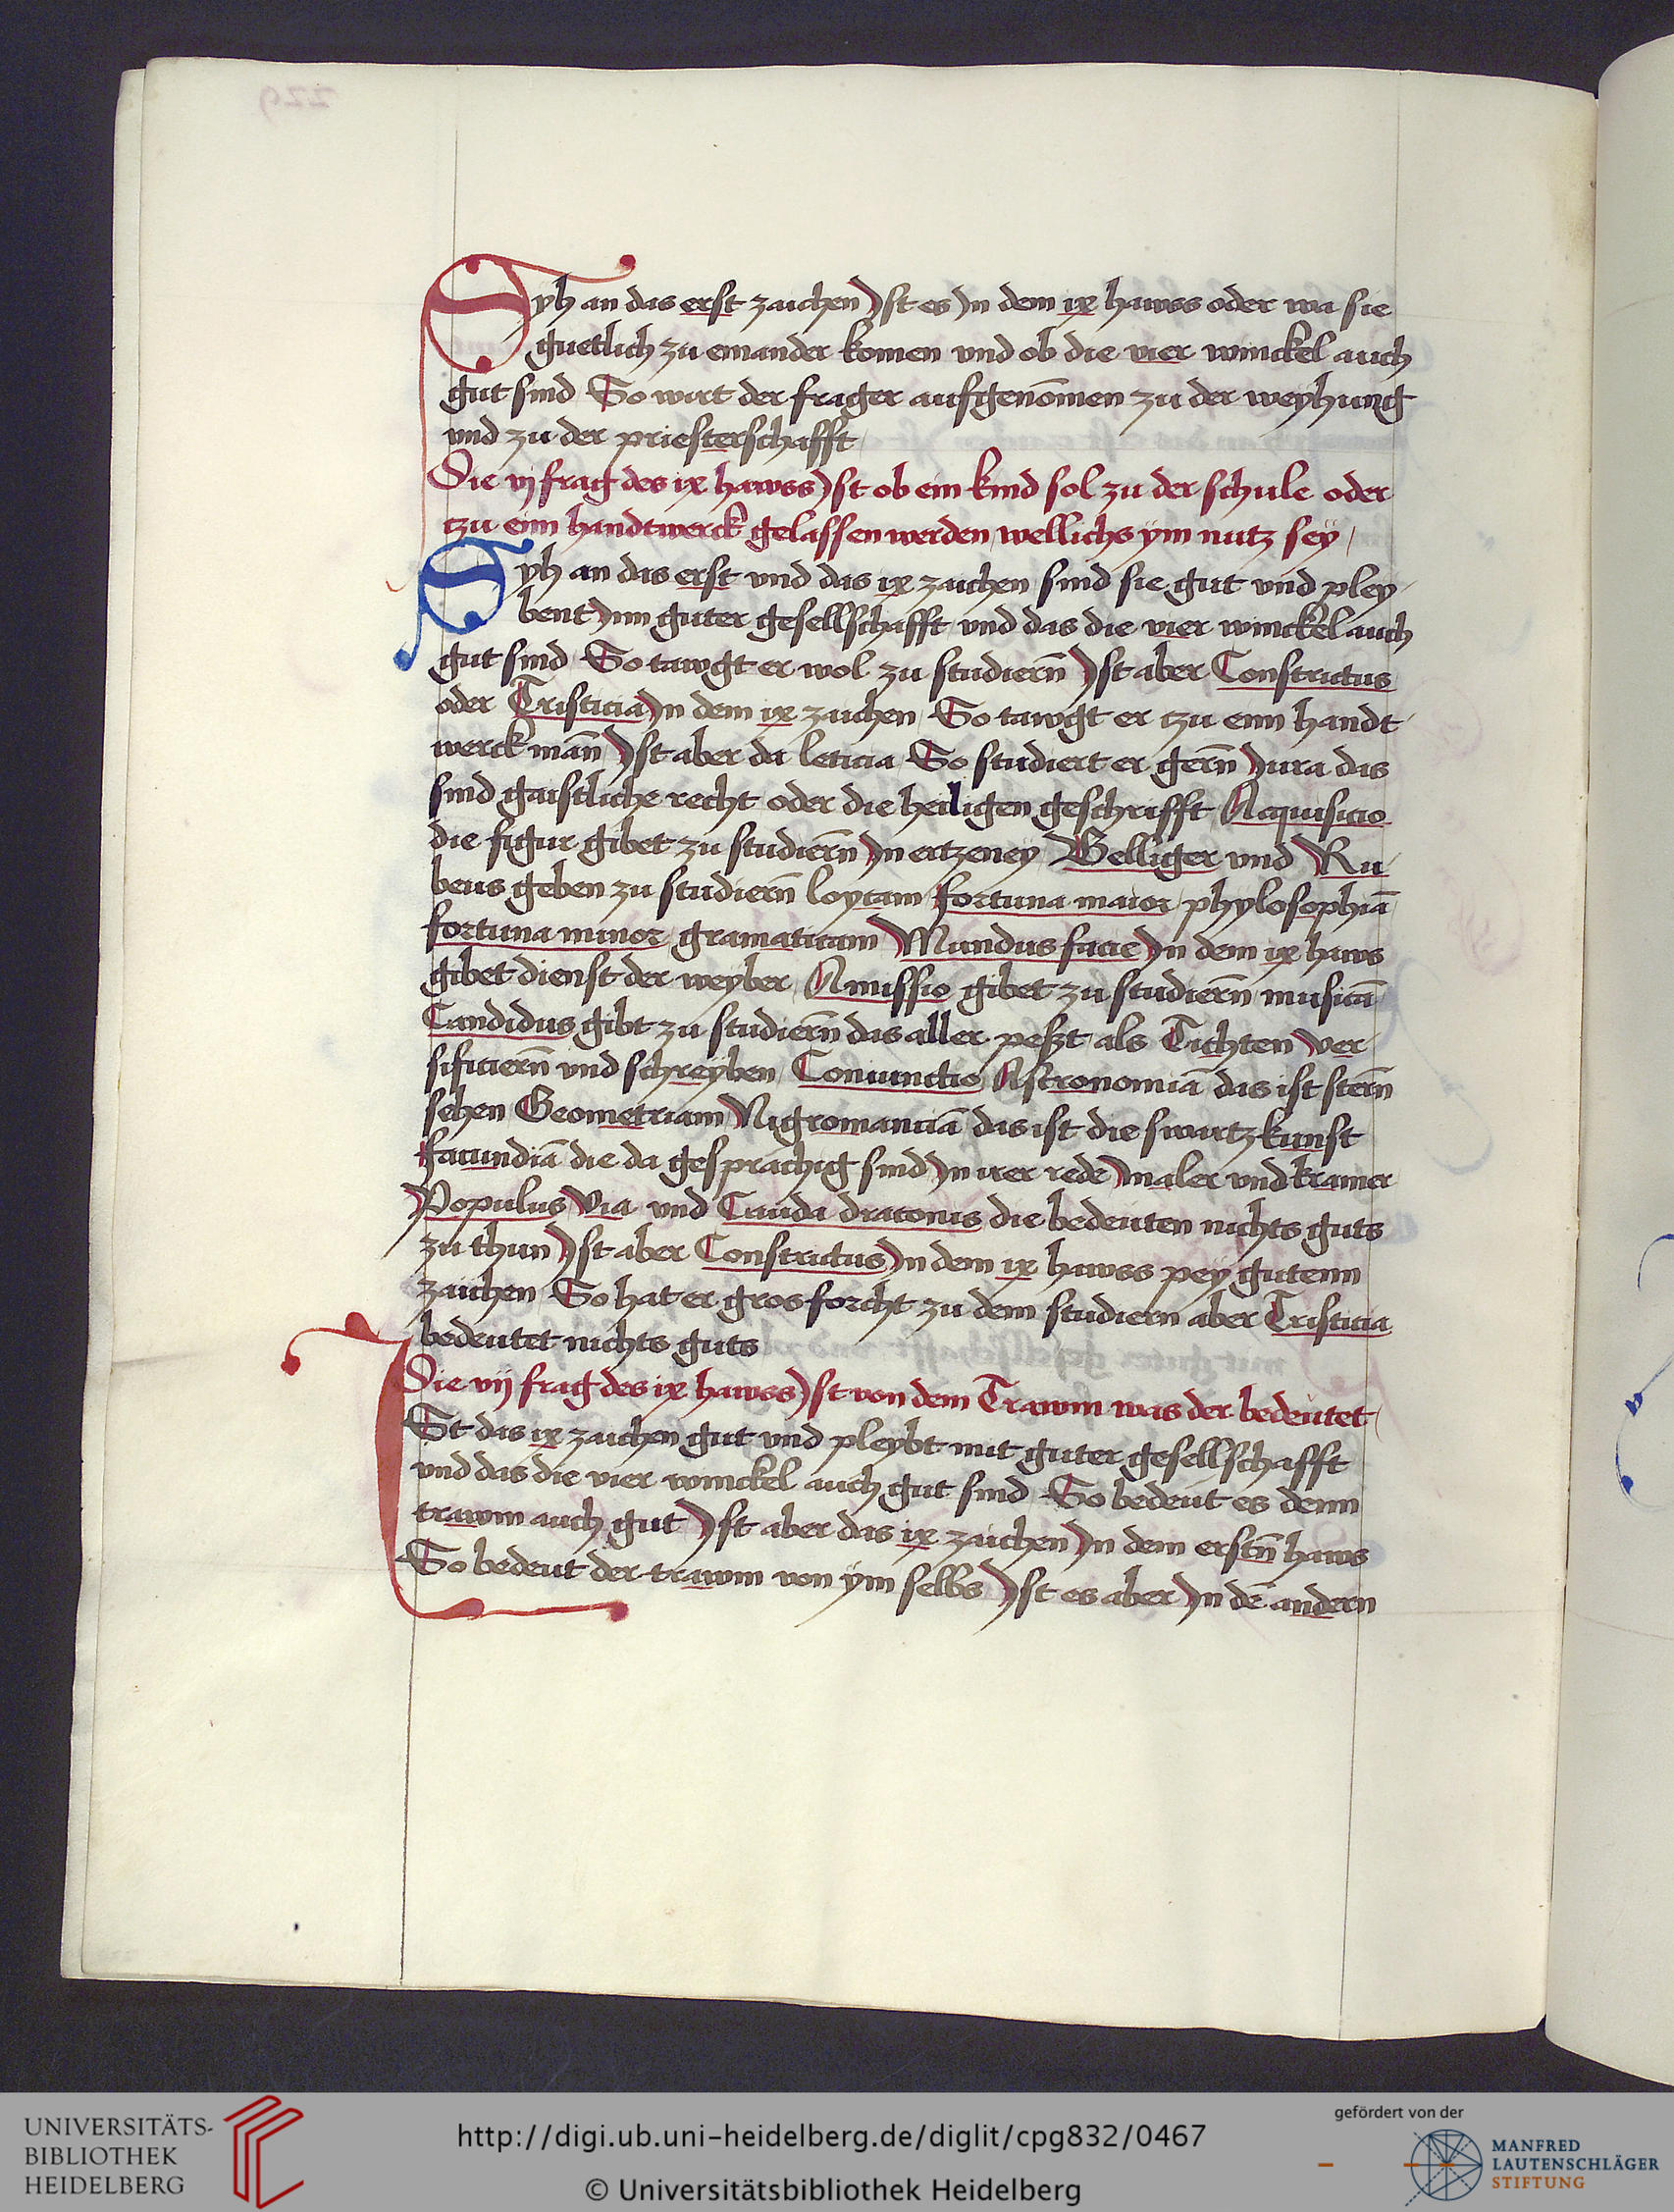 Syh an das erst zaichen Ist es In dem ix hawss oder wa sie
guetlich zu einander komen vnd ob die vier winckel auch
gut sind So wirt der frager aufgenom̄en zu der weyhung
vnd zu der priesterschafft
Die vj frag des ix hawss Ist ob ein kind sol zu der schule oder
tzu einn handtwerck gelassen werden wellichs ym nutz seÿ
Syh an das erst vnd das ix zaichen sind sie gut vnd pley
bent Inn guter gesellschafft vnd das die vier winckel auch
gut sind So tawgt er wol zu studiern̄ Ist aber Constrictus
oder Tristicia In dem ix zaichen So tawgt er tzu einn handt
werck man̄ Ist aber da leticia So studiert er gern̄ Jura das
sind gaistliche recht oder die heiligen geschrifft Acquisicio
die figur gibet zu studiern̄ In ertzeney Belliger vnd Ru
beus geben zu studiern̄ loycam fortuna maior phylosophiā
fortuna minor gramaticam Mundus facie In dem ix haws
gibet dienst der weyber Amissio gibet zu studiern̄ musicā
Candidus gibt zu studiern̄ das aller peßt als Tichten ver
sificiern̄ vnd schreyben Coniunctio Astronomiā das ist stern̄
sehen Geometriam Nigromanciā das ist die swartz kunst
facundiā die da gesprachig sind In irer rede maler vnd kramer
Populus Via vnd Cauda draconis die bedeuten nichts guts
zu thun Ist aber Constrictus In dem ix hawss peÿ gutenn
zaichen So hat er gros forcht zu dem studiern aber Tristicia
bedeutet nichts guts
Die vij frag des ix hawss Ist von dem Trawm was der bedeutet
ISt das ix zaichen gut vnd pleybt mit guter gesellschafft
vnd das die vier winckel auch gut sind So bedeut es denn
trawm auch gut Ist aber das ix zaichen In dem erstn̄ haws
So bedeut der trawm von ym selbs Ist es aber In dē andern
UNIVERSITÄTS-
BIBLIOTHEK
HEIDELBERG
http://digi.ub.uni-heidelberg.de/diglit/cpg832/0467
© Universitätsbibliothek Heidelberg
gefördert von der
MANFRED
LAUTENSCHLÄGER
STIFTUNG